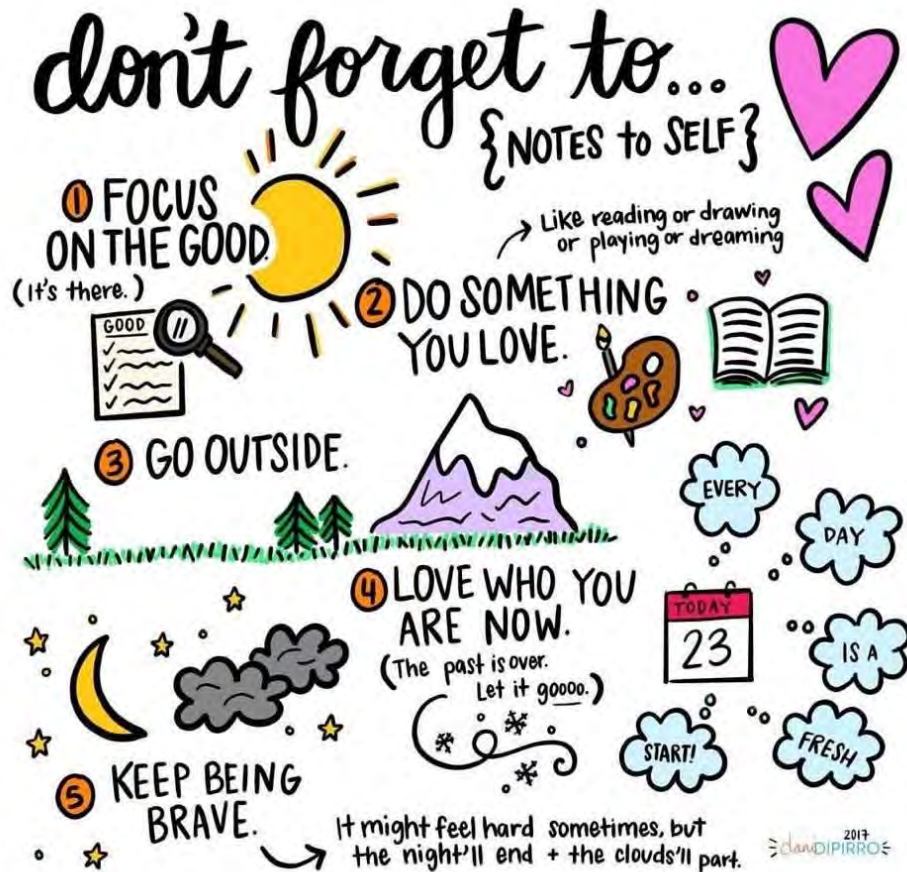 don't forget to...
{NOTES to SELF}
① FOCUS
ON THE GOOD.
(It's there.)
GOOD
② DO SOMETHING
YOU LOVE.
Like reading or drawing
or playing or dreaming
③ GO OUTSIDE.
④ LOVE WHO YOU
ARE NOW.
(The past is over.
Let it goooo.)
TODAY
23
EVERY
DAY
IS A
FRESH
START!
⑤ KEEP BEING
BRAVE.
It might feel hard sometimes, but
the night'll end + the clouds'll part.
2017
daniDIPIRRO